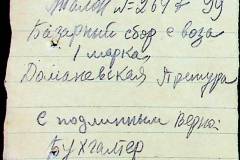 Талон №2647 99
Базарный сбор с воза
1 марка
Доманевская Претура
С подлинным верно:
Бухгалтер